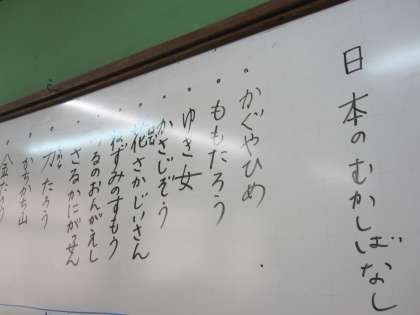 日本のむかしばなし
・かぐやひめ
・ももたろう
・ゆき女
・かさじぞう
・花さかじいさん
・ねずみのすもう
・つるのおんがえし
・さるかにがっせん
・力たろう
・かちかち山
・金たろう